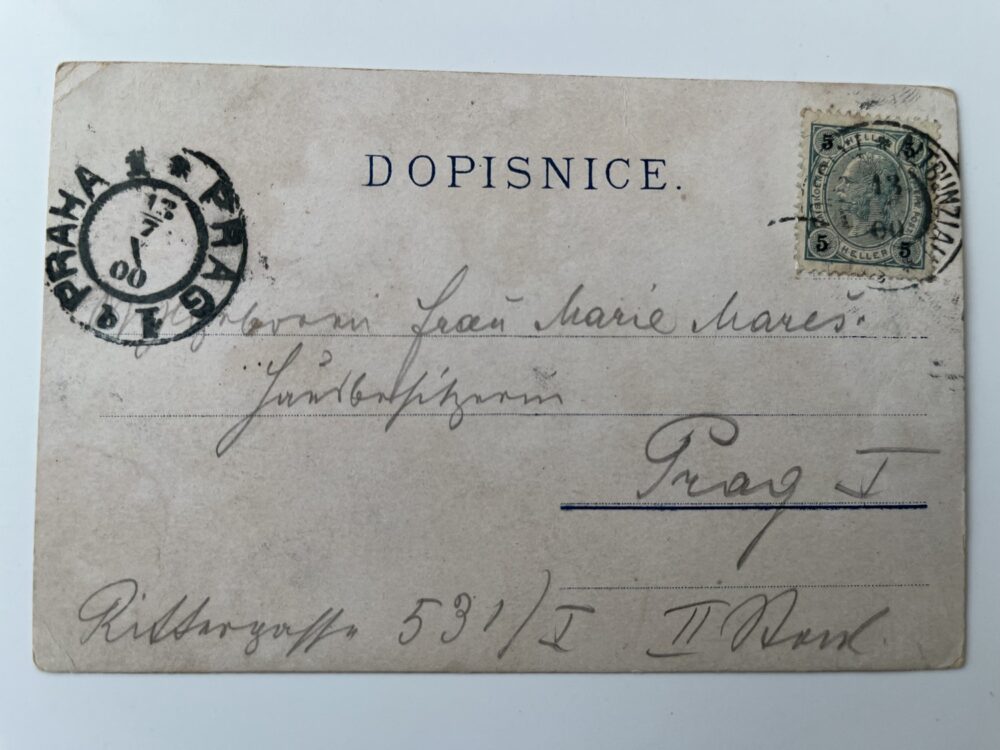 DOPISNICE.
5 HELLER 5
5 HELLER 5
JUNGBUNZLAU
13
00
1 * PRAG 1 * PRAHA
13
7
00
Frau Marie Mareš.
Hausbesitzerin
Prag I
Rittergasse 531/I II Stock.